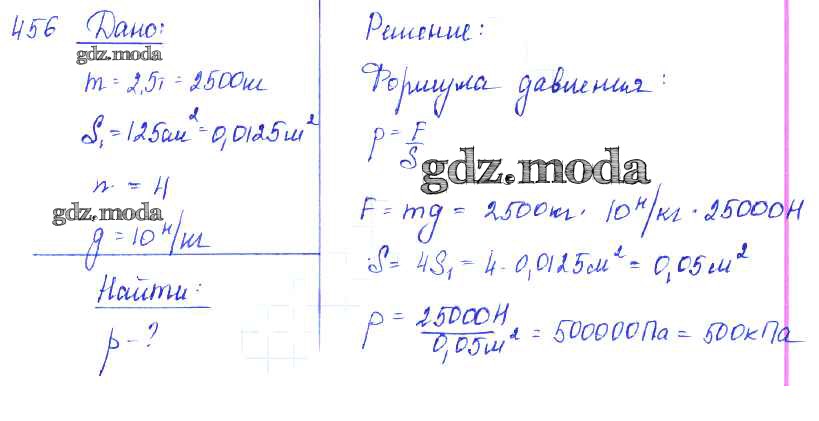 456 Дано:
gdz.moda
m = 2,5т = 2500кг
S₁ = 125см² = 0,0125м²
n = 4
gdz.moda
g = 10 Н/кг
Найти:
p - ?
Решение:
Формула давления:
p = F/S
gdz.moda
F = mg = 2500кг · 10 Н/кг · 25000Н
S = 4S₁ = 4 · 0,0125м² = 0,05м²
p = 25000Н/0,05м² = 500000Па = 500кПа